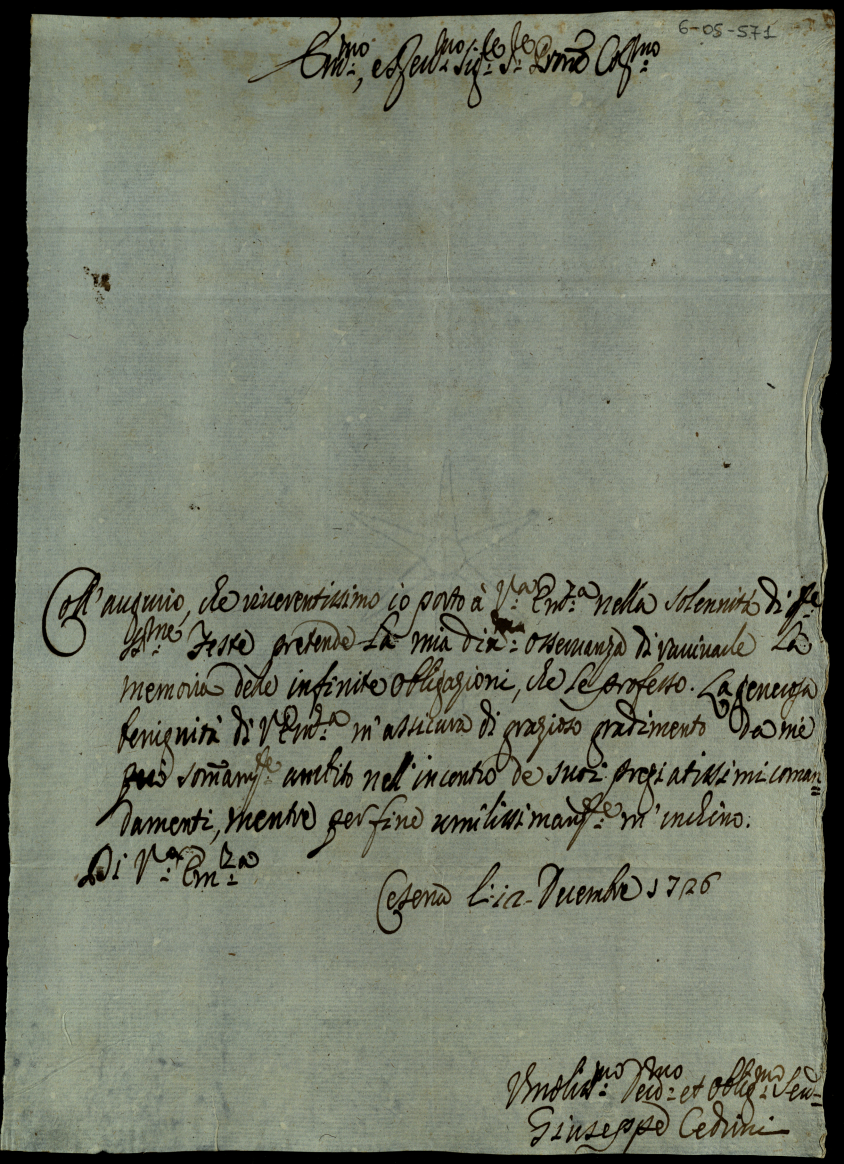 6-05-571
Em:mo, e Rev:mo Sig:re Sig:re Prone Col:mo
Coll'augurio, che riverentissimo io porto à V:a Em:za nella solennità di q:te
SS:me Feste pretende la mia div:ma osservanza di ravivarle la
memoria delle infinite obligazioni, che le professo. La generosa
benignità di V Em:za m'assicura di grazioso gradimento da me
più somam:te ambito nell'incontro de suoi pregiatissimi coman=
damenti, mentre per fine umilissimam:te m'inchino.
Di V:a Em:za
Cesena li: 12 Decembre 1726
Vmiliss:mo Dev:mo et Oblig:mo Serv:
Giuseppe